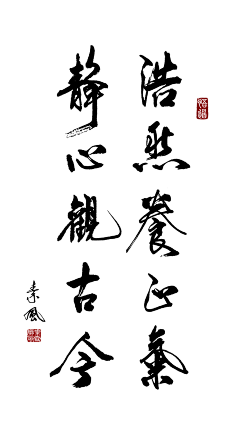 浩然養正氣
靜心觀古今
素風